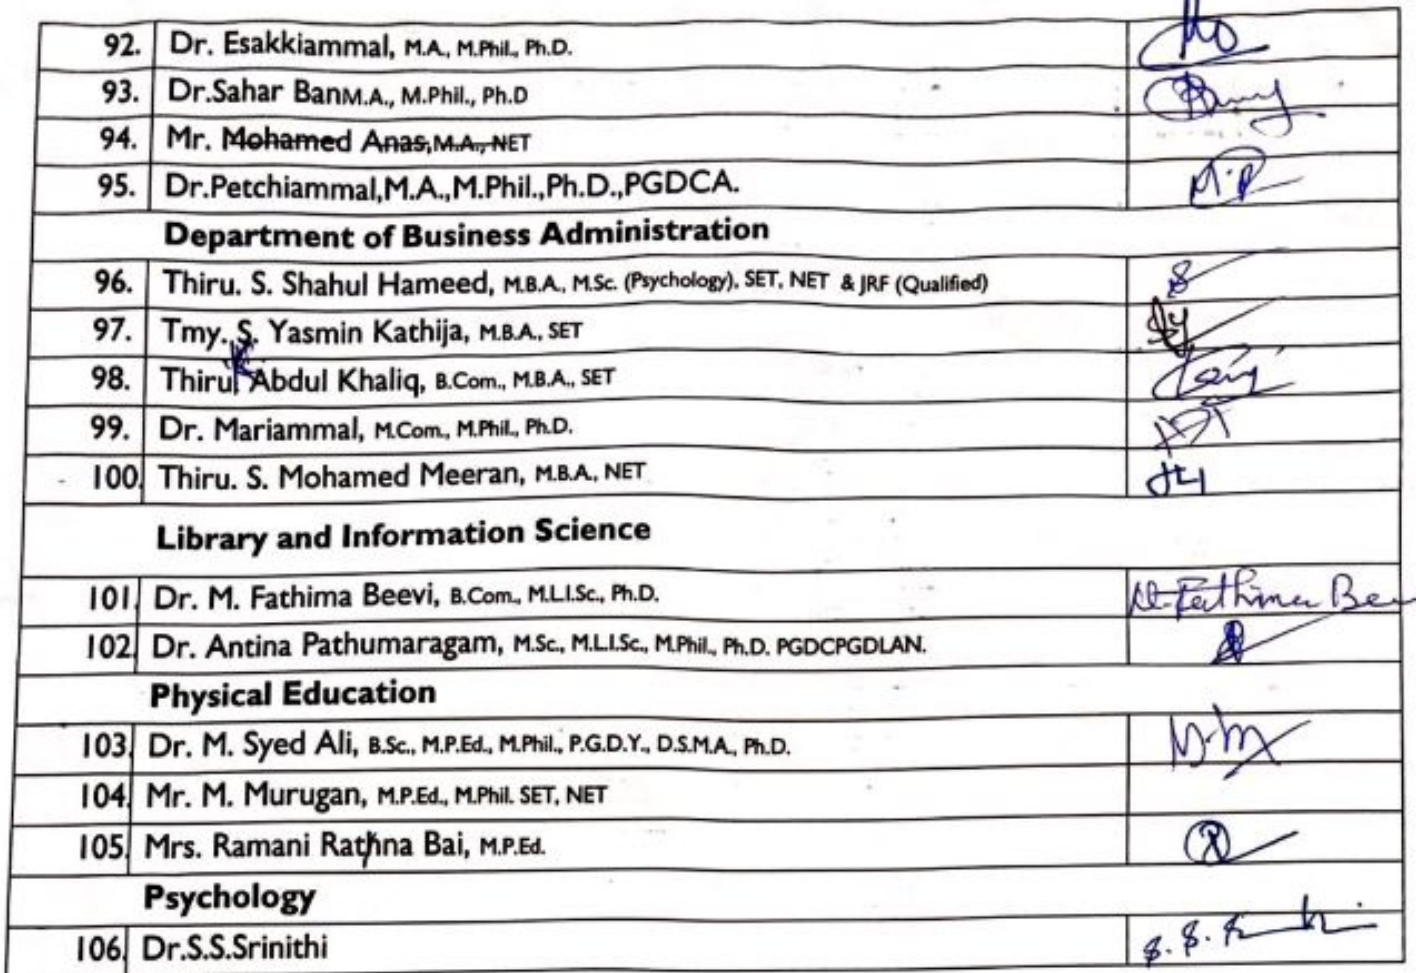 92. Dr. Esakkiammal, M.A., M.Phil., Ph.D.
93. Dr.Sahar BanM.A., M.Phil., Ph.D
94. Mr. Mohamed Anas,M.A., NET
95. Dr.Petchiammal,M.A.,M.Phil.,Ph.D.,PGDCA. M.P
Department of Business Administration
96. Thiru. S. Shahul Hameed, M.B.A., M.Sc. (Psychology), SET, NET & JRF (Qualified)
97. Tmy. S. Yasmin Kathija, M.B.A., SET
98. Thiru K Abdul Khaliq, B.Com., M.B.A., SET
99. Dr. Mariammal, M.Com., M.Phil., Ph.D.
100. Thiru. S. Mohamed Meeran, M.B.A., NET
Library and Information Science
101. Dr. M. Fathima Beevi, B.Com., M.L.I.Sc., Ph.D. M. Fathima Bee
102. Dr. Antina Pathumaragam, M.Sc., M.L.I.Sc., M.Phil., Ph.D. PGDCPGDLAN.
Physical Education
103. Dr. M. Syed Ali, B.Sc., M.P.Ed., M.Phil., P.G.D.Y., D.S.M.A., Ph.D.
104. Mr. M. Murugan, M.P.Ed., M.Phil. SET, NET
105. Mrs. Ramani Rathna Bai, M.P.Ed.
Psychology
106. Dr.S.S.Srinithi